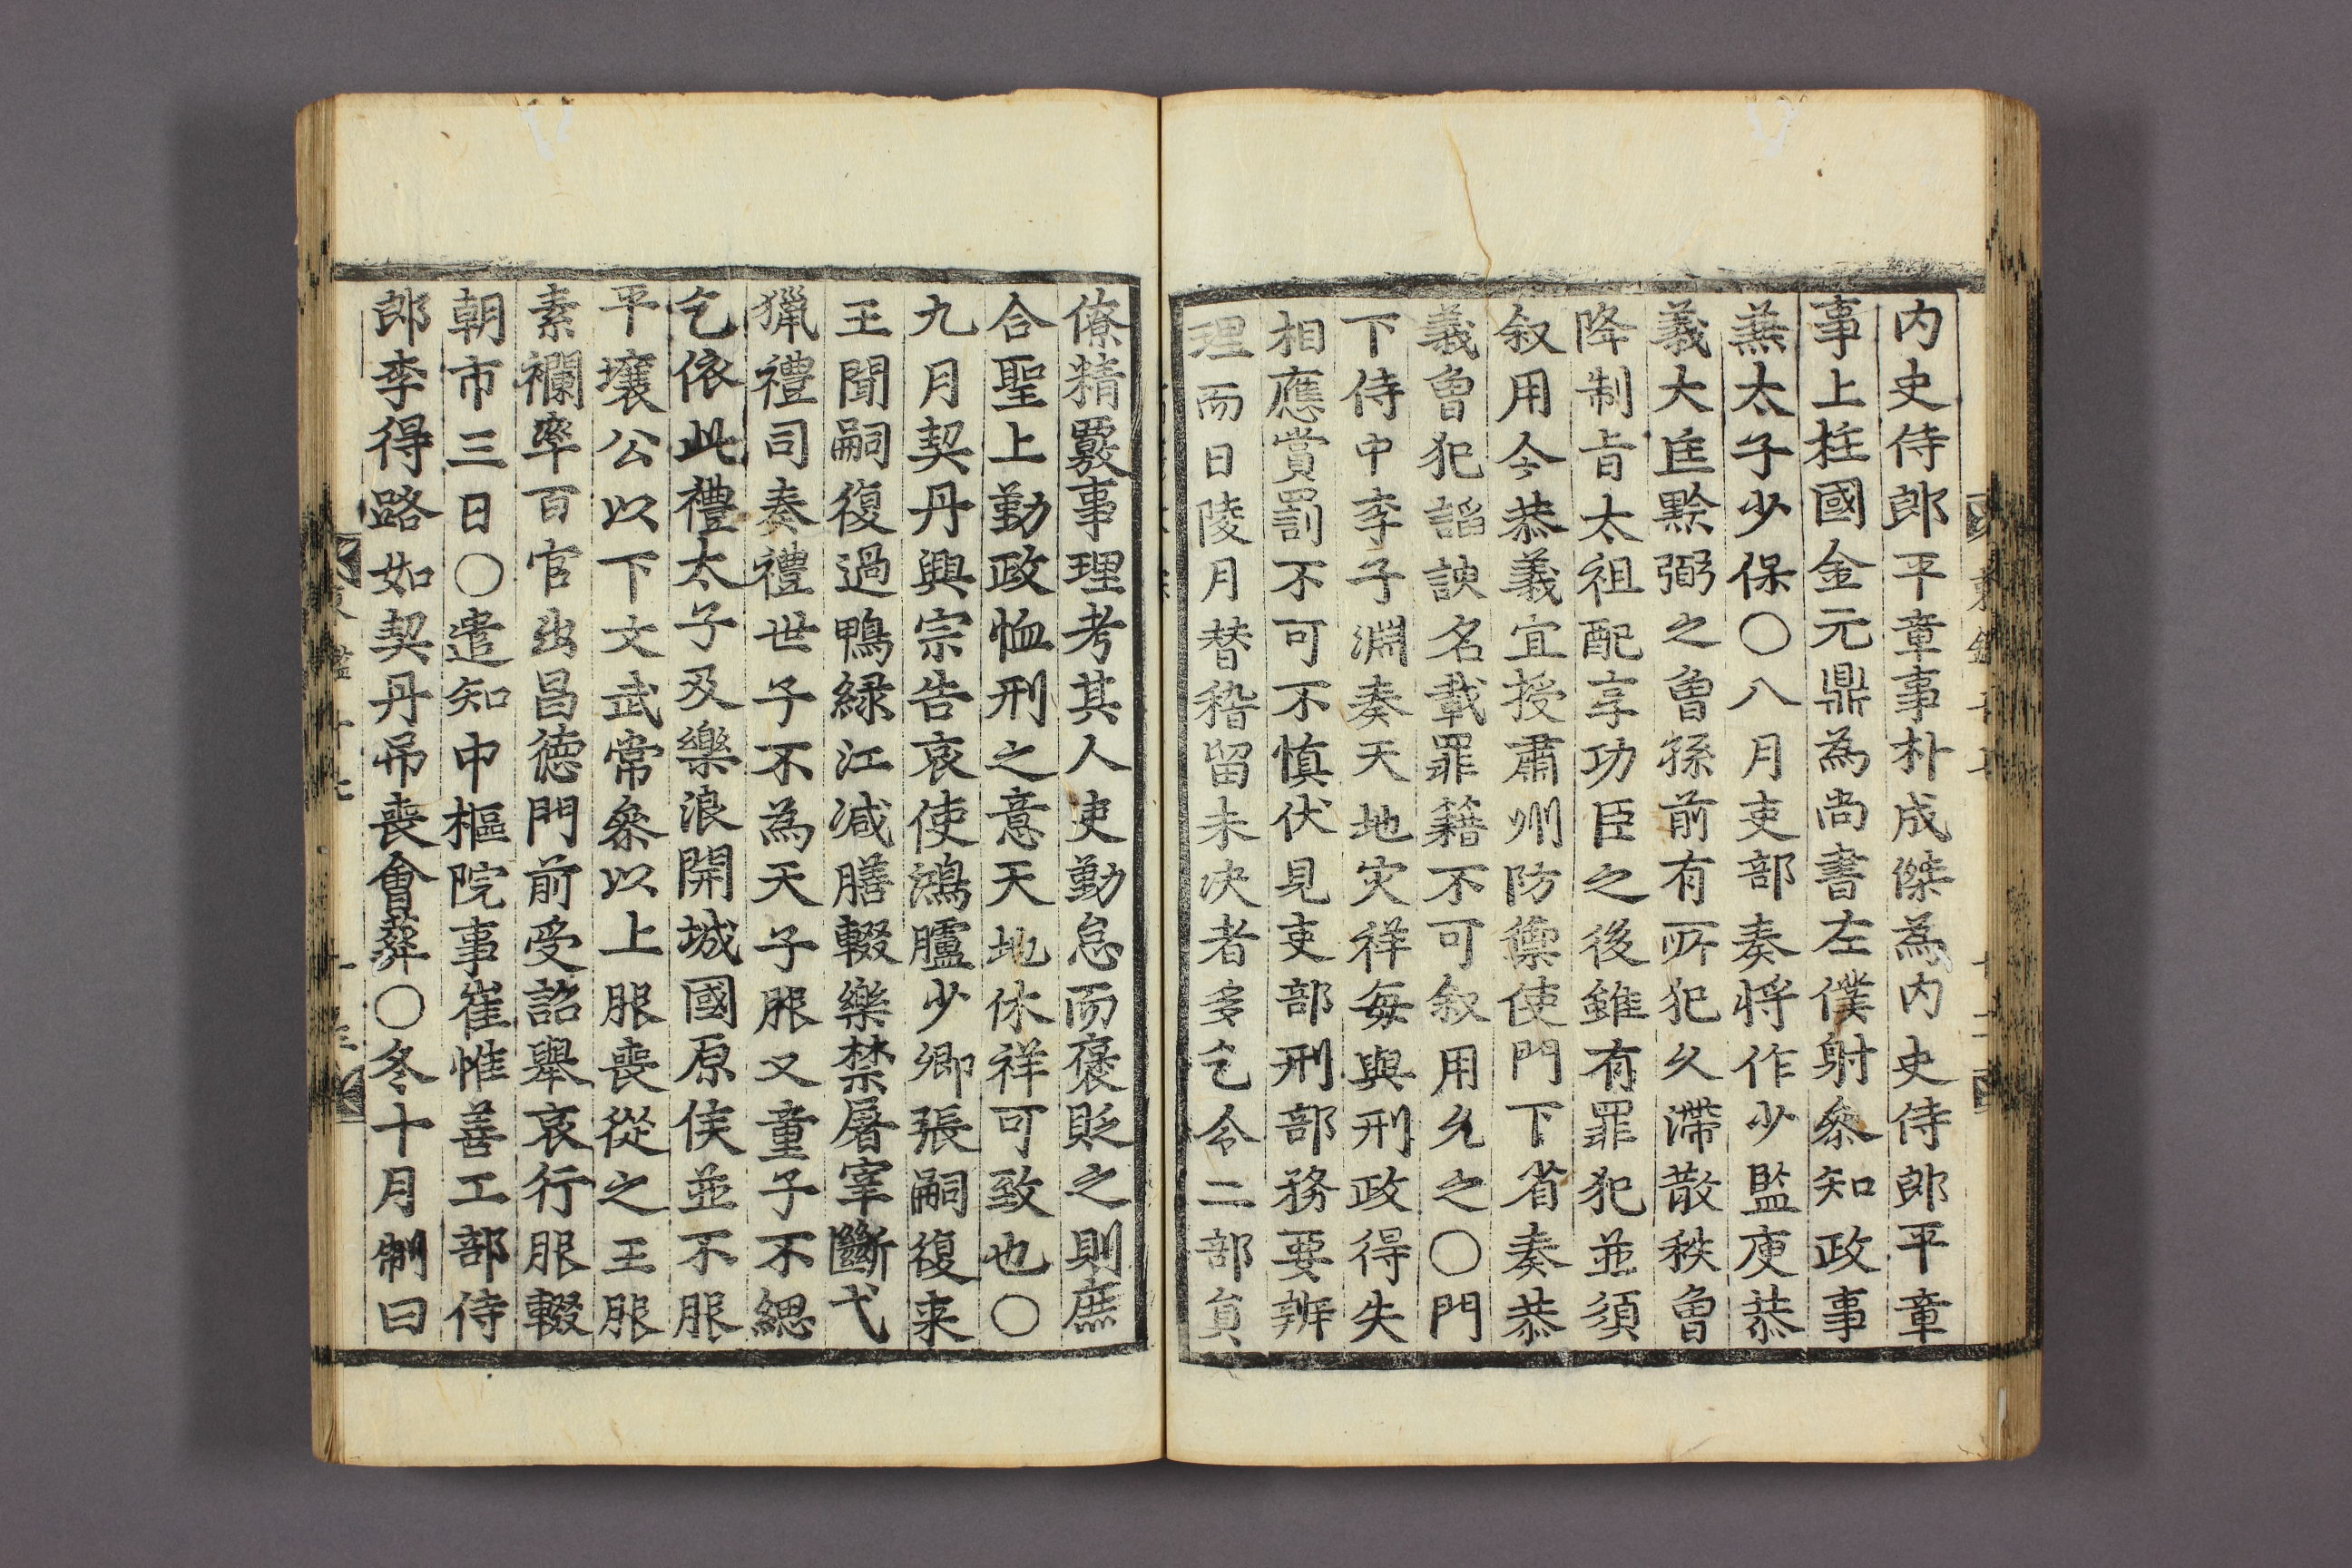 内史侍郎平章事朴成傑為内史侍郎平章
事上柱國金元鼎為尚書左僕射叅知政事
蕪太子少保○八月吏部奏将作少監庾恭
義大匡黔弼之曾孫前有所犯久滯散秩曾
降制㫖太祖配享功臣之後雖有罪犯並須
叙用今恭義宜授肅州防禦使門下省奏恭
義曾犯諂諛名載罪籍不可叙用允之○門
下侍中李子淵奏天地灾祥每與刑政得失
相應賞罰不可不慎伏見吏部刑部務要辨
理而日陵月替稽留未决者多乞令二部負
僚精覈事理考其人吏勤怠而褒貶之則庶
合聖上勤政恤刑之意天地休祥可致也○
九月契丹興宗告哀使鴻臚少卿張嗣復来
王聞嗣復過鴨緑江減膳輟樂禁屠宰斷弋
獵禮司奏禮世子不為天子服又童子不緦
乞依此禮太子及樂浪開城國原侯並不服
平壤公以下文武常叅以上服喪從之王服
素襴率百官出昌德門前受詔舉哀行服輟
朝市三日○遣知中樞院事崔惟善工部侍
郎李得路如契丹吊喪會葬○冬十月制曰